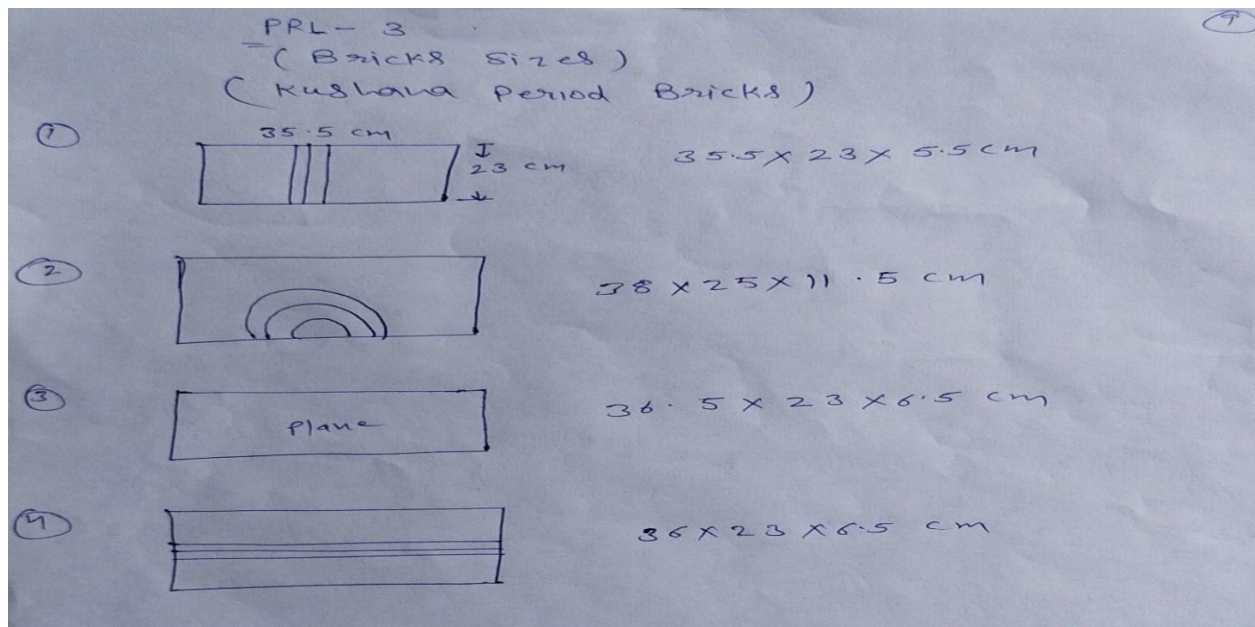 PRL - 3
(Bricks Sizes)
(Kushana Period Bricks)
1
35.5 cm
23 cm
35.5 x 23 x 5.5 cm
2
38 x 25 x 11.5 cm
3
Plane
36.5 x 23 x 6.5 cm
4
36 x 23 x 6.5 cm